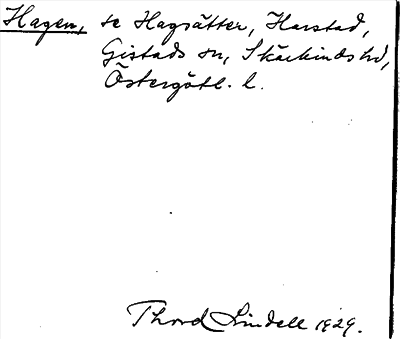 Hagen, se Hagsätter, Harstad,
Gistads sn, Skärkinds hd,
Östergötl. l.
Thord Lindell 1929.